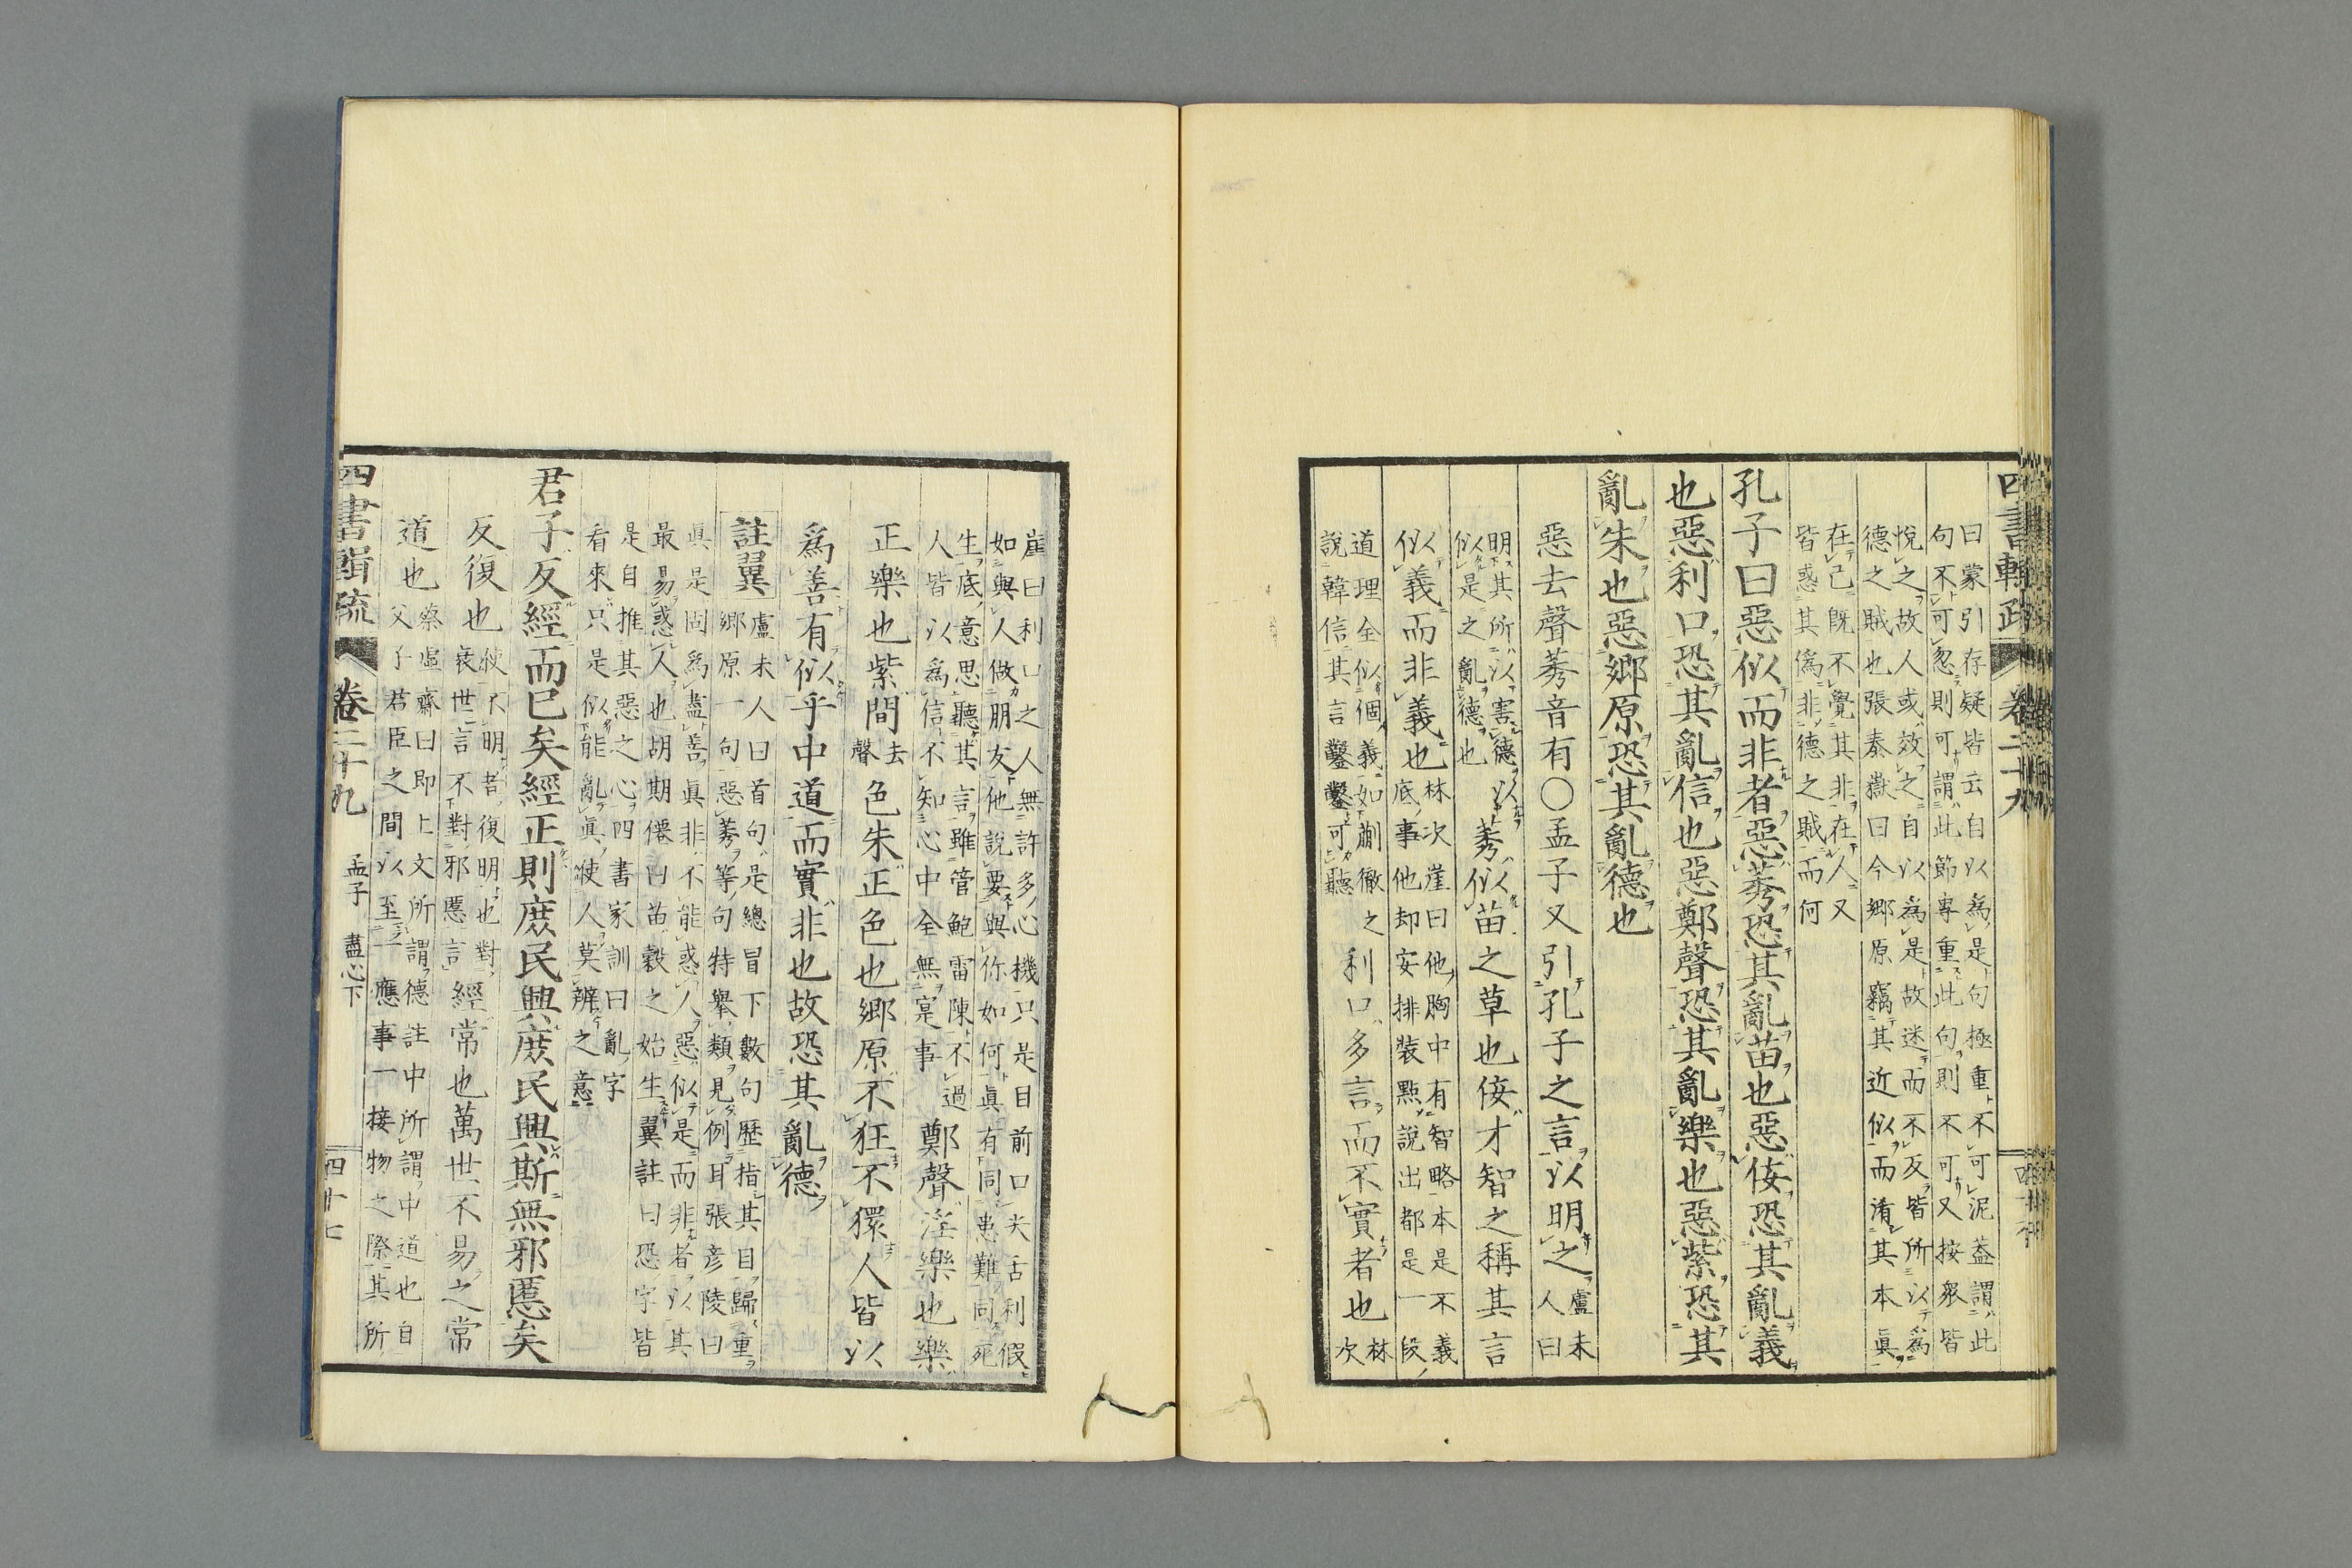 四書輯疏 卷二十九
曰蒙引存疑皆云自以爲是句極重不可泥蓋謂此
句不可忽則可謂此節專重此句則不可又按衆皆
悅之故人或效之自以爲是故迷而不反皆所以爲
德之賊也張泰嶽曰今鄉原竊其近似而淆其本眞
在己既不覺其非在人又
皆惑其僞非德之賊而何
孔子曰惡似而非者惡莠恐其亂苗也惡佞恐其亂義
也惡利口恐其亂信也惡鄭聲恐其亂樂也惡紫恐其
亂朱也惡鄉原恐其亂德也
惡去聲莠音有○孟子又引孔子之言以明之盧未人曰
明其所以害德以
似是之亂德也
莠似苗之草也佞才智之稱其言
似義而非義也林次崖曰他胸中有智略本是不義
底事他却安排裝點說出都是一段
道理全似個義如蒯徹之
說韓信其言鑿鑿可聽
利口多言而不實者也林次
崖曰利口之人無許多心機只是目前口尖舌利假
如與人做朋友他說要與你如何眞有同患難同死
生底意思聽其言雖管鮑雷陳不過
人皆以爲信不知心中全無寔事
鄭聲淫樂也樂
正樂也紫間去聲色朱正色也鄉原不狂不獧人皆以
爲善有似乎中道而實非也故恐其亂德
註翼 盧未人曰首句是總冒下數句歷指其目歸重
鄉原一句惡莠等句特舉類見例耳張彥陵曰
眞是固爲盡善眞非不能惑人惡似是而非者以其
最易惑人也胡期僊曰苗穀之始生翼註曰恐字皆
是自推其惡之心四書家訓曰亂字
看來只是似能亂眞使人莫辨之意
君子反經而已矣經正則庶民興庶民興斯無邪慝矣
反復也使不明者復明也對
衰世言不對邪慝言
經常也萬世不易之常
道也蔡虛齋曰即上文所謂德註中所謂中道也自
父子君臣之間以至一應事一接物之際其所
四書輯疏 卷二十九 孟子 盡心下 四十七